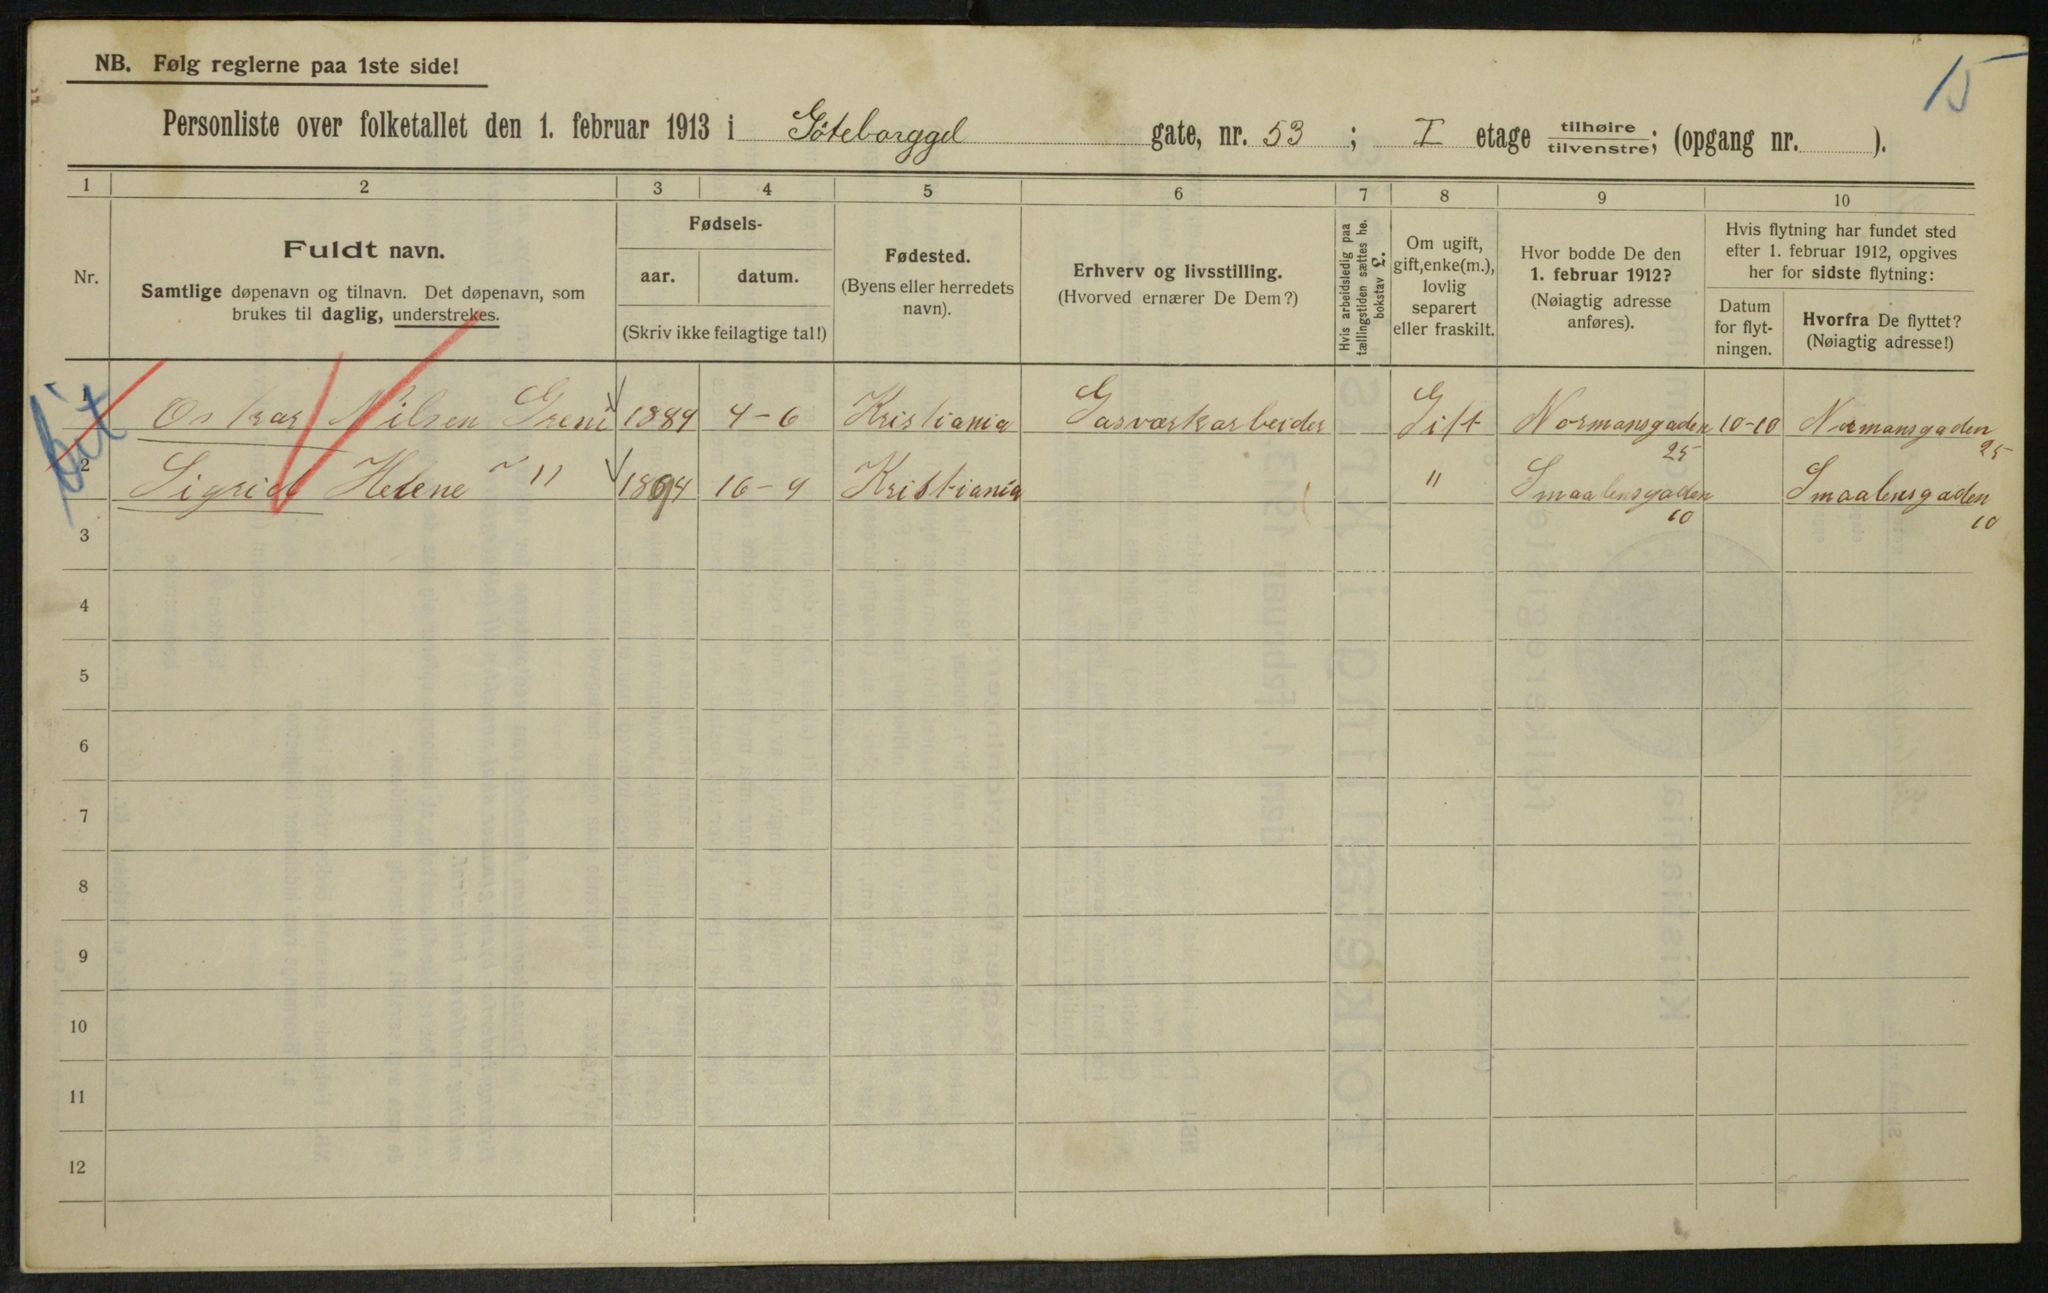 15
NB. Følg reglerne paa 1ste side!
Personliste over folketallet den 1. februar 1913 i Göteborggd gate, nr. 53 ; I etage tilhøire tilvenstre; (opgang nr. ).
1 2 3 4 5 6 7 8 9 10
Nr.
Fuldt navn.
Samtlige døpenavn og tilnavn. Det døpenavn, som
brukes til daglig, understrekes.
Fødsels-
aar. datum.
(Skriv ikke feilagtige tal!)
Fødested.
(Byens eller herredets
navn).
Erhverv og livsstilling.
(Hvorved ernærer De Dem?)
Hvis arbeidsledig paa
tællingstiden sættes he.
bokstav L.
Om ugift,
gift, enke(m.),
lovlig
separert
eller fraskilt.
Hvor bodde De den
1. februar 1912?
(Nøiagtig adresse
anføres).
Hvis flytning har fundet sted
efter 1. februar 1912, opgives
her for sidste flytning:
Datum
for flyt-
ningen.
Hvorfra De flyttet?
(Nøiagtig adresse!)
1 Oskar Nilsen Greni 1889 4-6 Kristiania Gasværkarbeider Gift Normansgaden 25 10-10 Normansgaden 25
2 Sigrid Helene " 1894 16-9 Kristiania " Smaalensgaden 10 Smaalensgaden 10
3
4
5
6
7
8
9
10
11
12